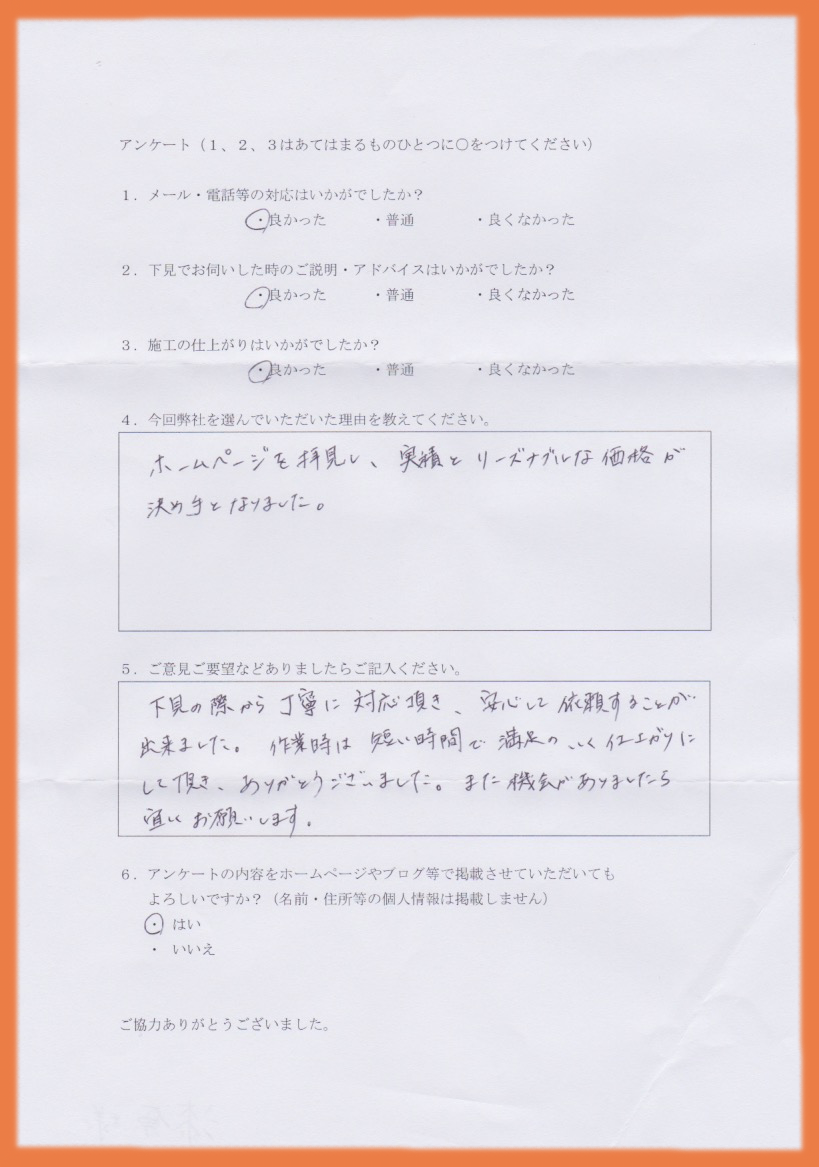 アンケート（１、２、３はあてはまるものひとつに〇をつけてください）
１．メール・電話等の対応はいかがでしたか？
・良かった　・普通　・良くなかった
２．下見でお伺いした時のご説明・アドバイスはいかがでしたか？
・良かった　・普通　・良くなかった
３．施工の仕上がりはいかがでしたか？
・良かった　・普通　・良くなかった
４．今回弊社を選んでいただいた理由を教えてください。
ホームページを拝見し、実績とリーズナブルな価格が
決め手となりました。
５．ご意見ご要望などありましたらご記入ください。
下見の際から丁寧に対応頂き、安心して依頼することが
出来ました。作業時は短い時間で満足のいく仕上がりに
して頂き、ありがとうございました。また機会がありましたら
宜しくお願いします。
６．アンケートの内容をホームページやブログ等で掲載させていただいても
よろしいですか？（名前・住所等の個人情報は掲載しません）
・　はい
・　いいえ
ご協力ありがとうございました。